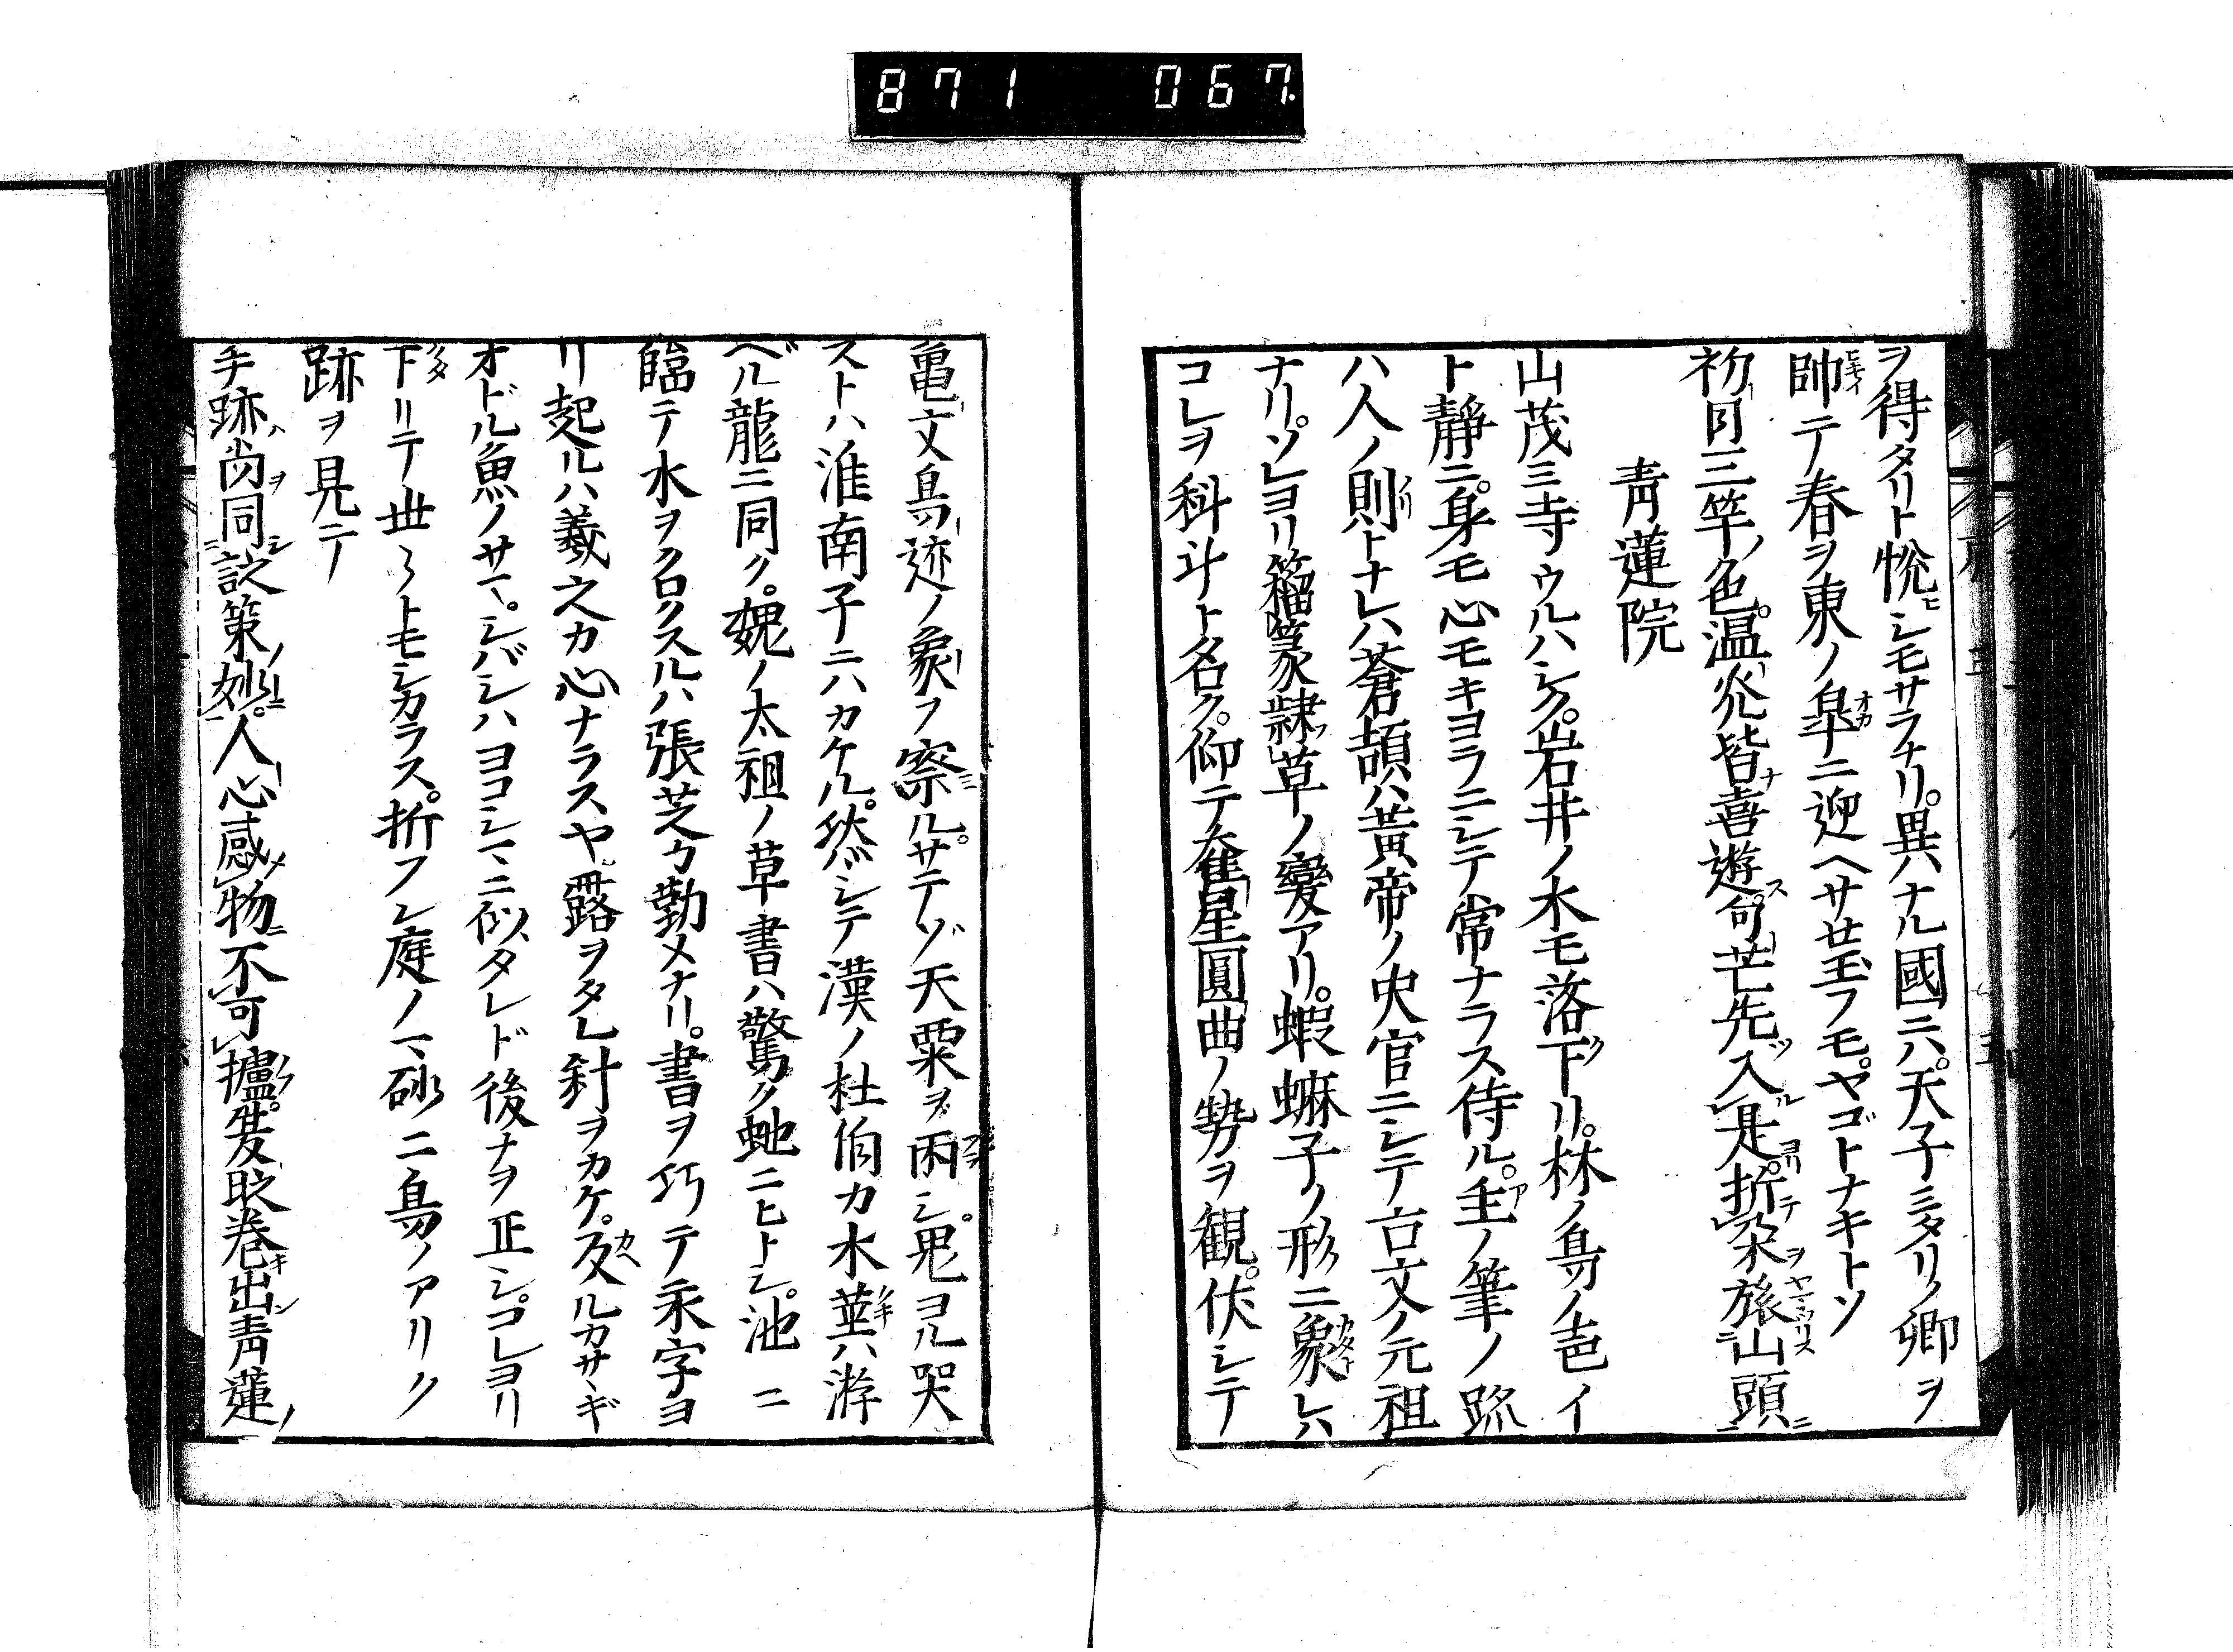 871 067
ヲ得タリト悦ヒシモサラナリ。異ハナル國ニハ。天子ミタリノ卿ヲ
帥テ春ヲ東ノ皐ニ迎ヘサセ玉フモ。ヤゴトナキトソ
初月三竿ノ色。温炎皆喜遊。句芒先入是。折朶旅山頭
青蓮院
山茂ミ寺ウルハシク。岩井ノ木モ落下リ。林ノ鳥ノ色イ
ト靜ニ。身モ心モキヨラニシテ常ナラス侍ル。主ノ筆ノ跡
ハ人ノ則トナレハ蒼頡ハ黄帝ノ史官ニシテ古文ノ元祖
ナリ。ソレヨリ籀篆隷草ノ變アリ。蝦蟆子ノ形ニ象レハ
コレヲ科斗ト名ク。仰テ奎星圓曲ノ勢ヲ観。伏シテ
亀文鳥迹ノ象ヲ察ル。サテゾ天粟ヲ雨シ。鬼ヨル哭
ストハ淮南子ニハカケル。然バシテ漢ノ杜伯カ水莖ハ游
ヘル龍ニ同ク。魏ノ太祖ノ草書ハ驚ク虵ニヒトシ。池ニ
臨テ水ヲクロクスルハ張芝カ勤メナリ。書ヲ巧テ永字ヨ
リ起ルハ羲之カ心ナラスヤ。露ヲタレ針ヲカケ。反ルカサヽギ
オドル魚ノサマ。シバシハヨコシマニ似タレド後ナヲ正シ。コレヨリ
下リテ世々トモシカラス。折フシ庭ノマ砂ニ鳥ノアリク
跡ヲ見テ
手跡尚同談策妙。人心感物不可攄。發眨巻出青蓮